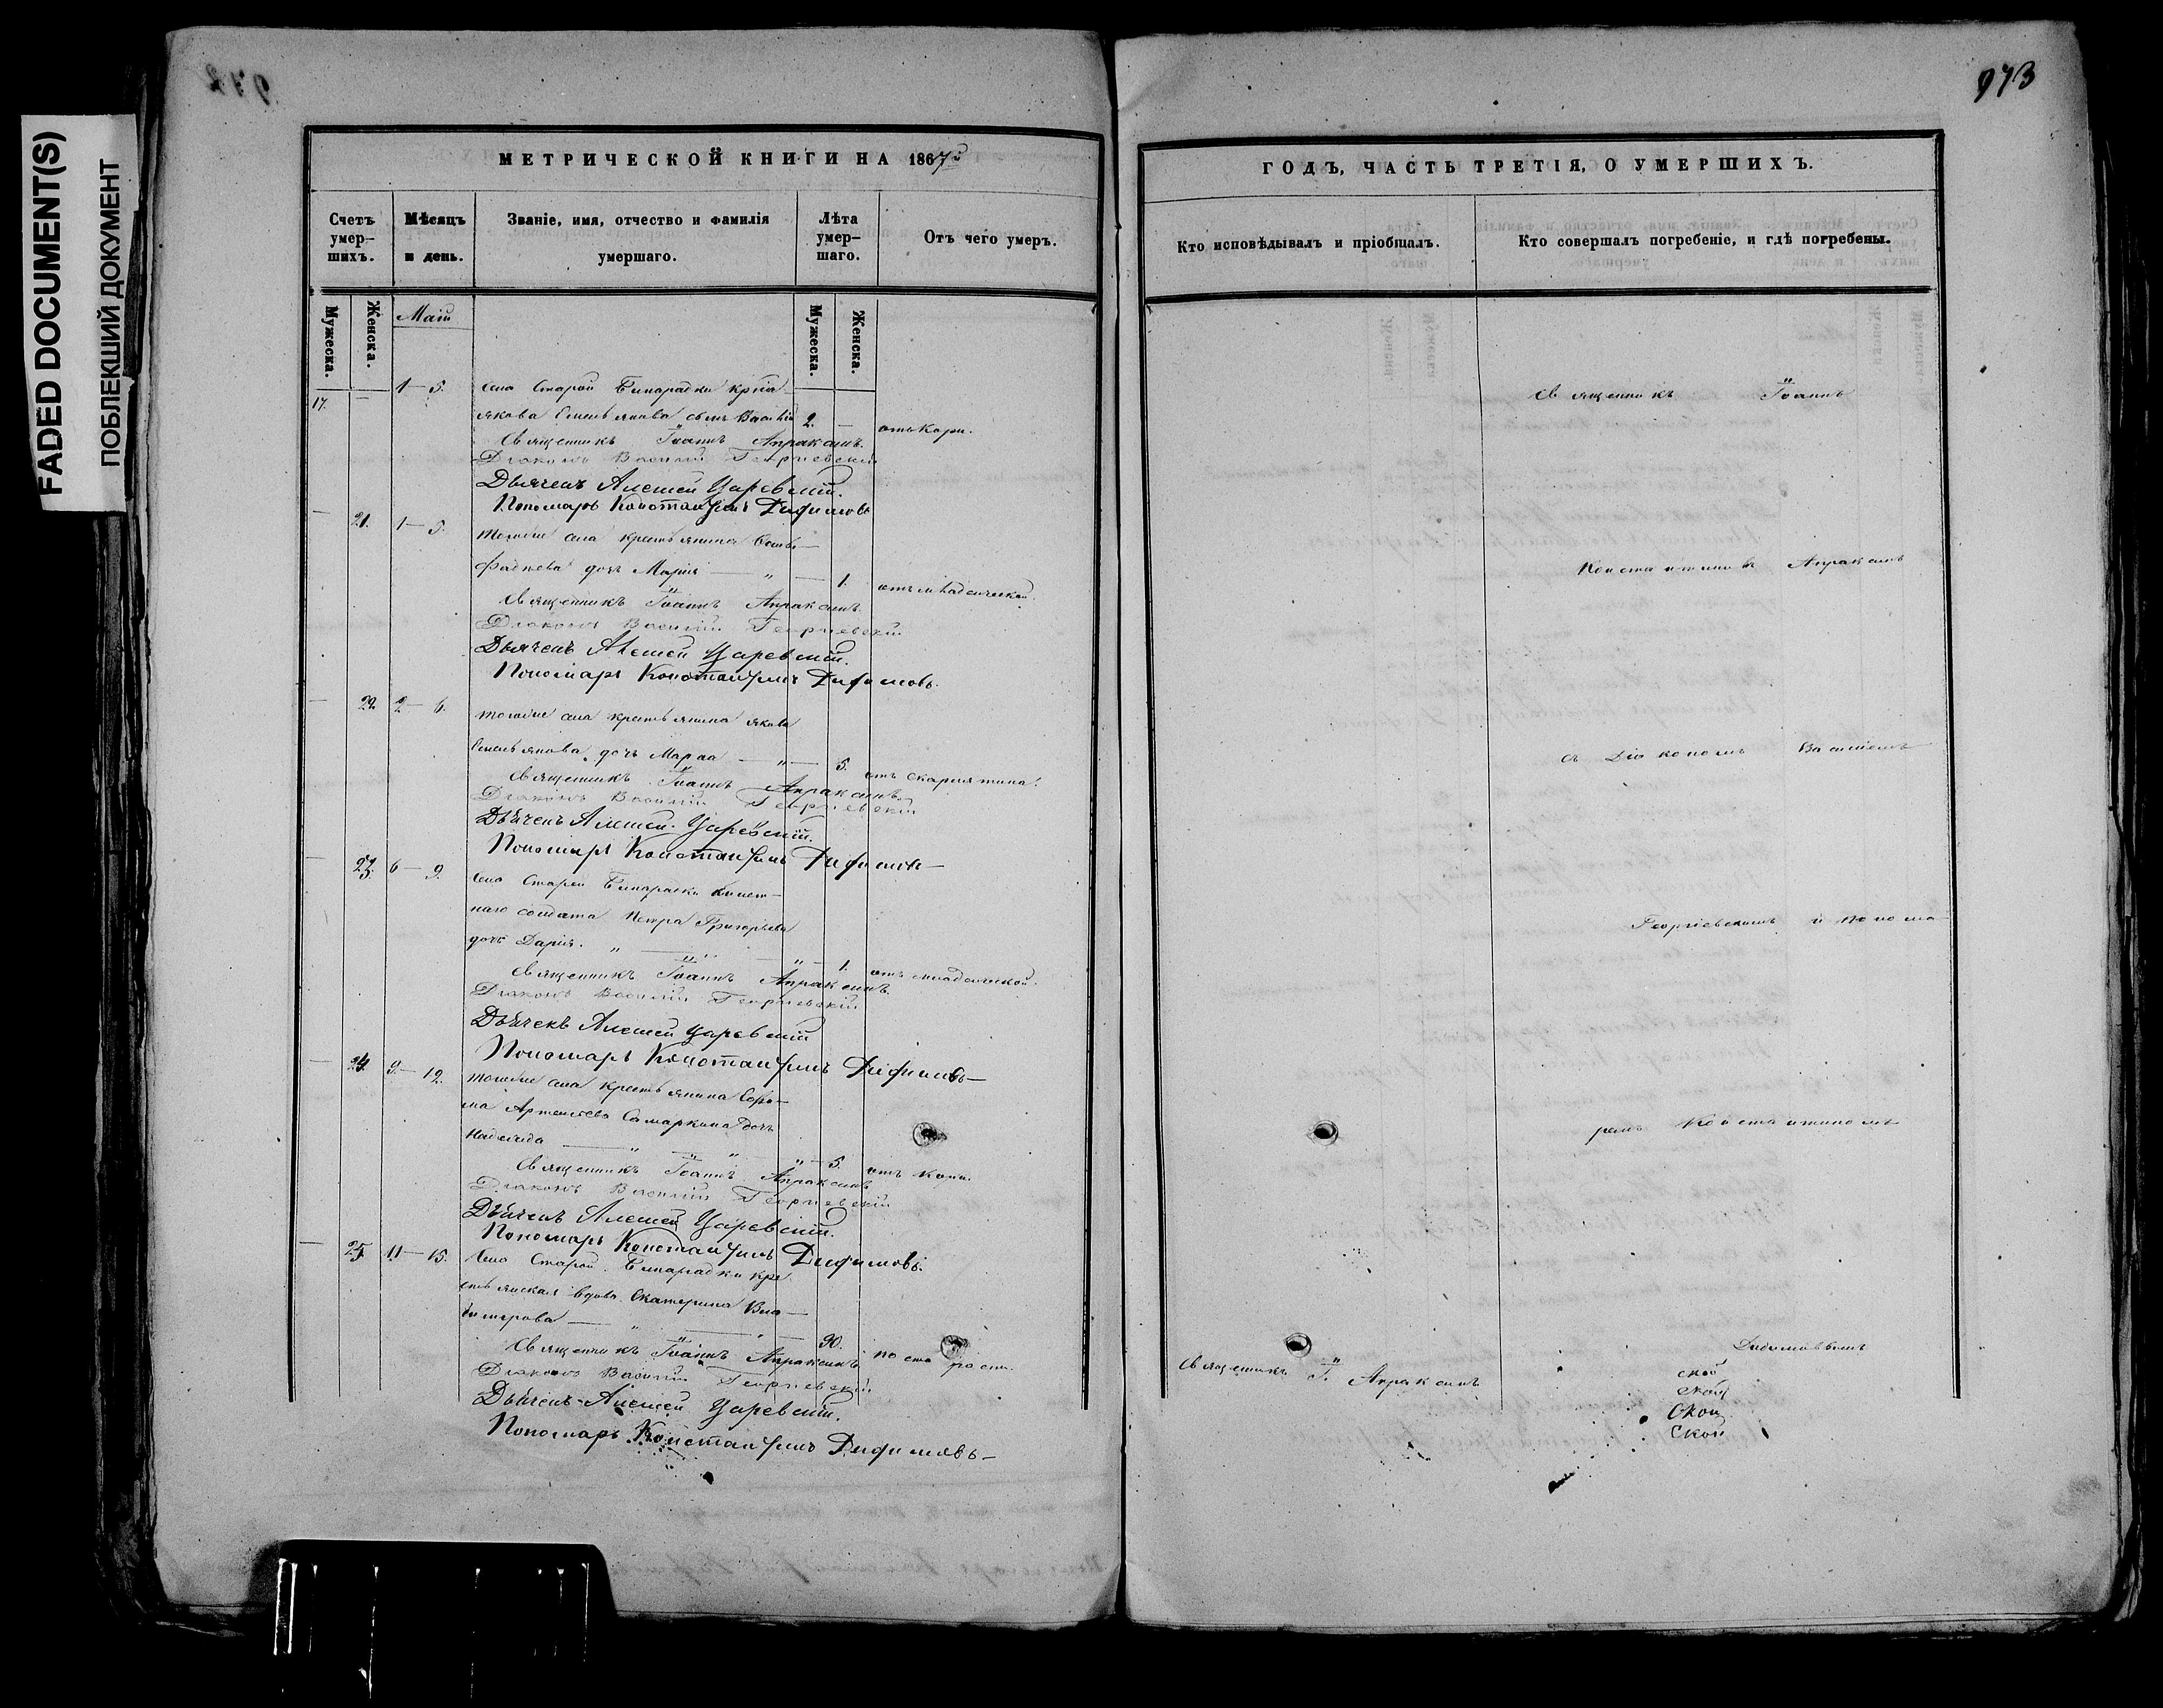 FADED DOCUMENT(S)
ПОБЛЕКШИЙ ДОКУМЕНТ
МЕТРИЧЕСКОЙ КНИГИ НА 1867й
Счетъ умер-
шихъ.
Мѣсяцъ
и день.
Званіе, имя, отчество и фамилія
умершаго.
Лѣта умер-
шаго.
Отъ чего умеръ.
Мужеска.
Женска.
Маій
Мужеска.
Женска.
17. — 1 — 5. Села Старой Бинарадки крѣіа
якова Емельянова сынъ Василій 2. — отъ кори.
Священникъ Іоаннъ Апраксинъ.
Діаконъ Василій Георгіевскій
Дьячекъ Алексѣй Царевскій.
Пономарь Константинъ Дифимовъ
— 21. 1 — 5. Тогоже села крестьянина
Фадѣева дочь Марія — " — 1. отъ младенческой.
Священникъ Іоаннъ Апраксинъ.
Діаконъ Василій Георгіевскій
Дьячекъ Алексѣй Царевскій.
Пономарь Константинъ Дифимовъ.
— 22. 2 — 6. Тогоже села крестьянина якова
Емельянова дочь Марѳа — " — 5. отъ скарлатина.
Священникъ Іоаннъ Апраксинъ.
Діаконъ Василій Георгіевскій
Дьячекъ Алексѣй Царевскій.
Пономарь Константинъ Дифимовъ —
— 23. 6 — 9. Села Старой Бинарадки
наго солдата Петра Григорьева
дочь Дарія. " — " — 1. отъ младенческой.
Священникъ Іоаннъ Апраксинъ.
Діаконъ Василій Георгіевскій
Дьячекъ Алексѣй Царевскій
Пономарь Константинъ Дифимовъ —
— 24. 9 — 12. Тогоже села крестьянина
ма Артемьева Самаркина дочь
Надежда — " — " — 5. отъ кори.
Священникъ Іоаннъ Апраксинъ
Діаконъ Василій Георгіевскій
Дьячекъ Алексѣй Царевскій.
Пономарь Константинъ Дифимовъ.
— 25. 11 — 15. Села Старой Бинарадки кре
стьянская вдова Екатерина Вла—
димерова — " — " — 90. по старости.
Священникъ Іоаннъ Апраксинъ
Діаконъ Василій Георгіевскій
Дьячекъ Алексѣй Царевскій.
Пономарь Константинъ Дифимовъ —
973
ГОДЪ, ЧАСТЬ ТРЕТІЯ, О УМЕРШИХЪ.
Кто исповѣдывалъ и пріобщалъ.
Кто совершалъ погребеніе, и гдѣ погребены.
Священникъ Іоаннъ
Константиновъ Апраксинъ
съ Діакономъ Василіемъ
Георгіевскимъ и понома—
ремъ Константиномъ
Священникъ І. Апраксинъ